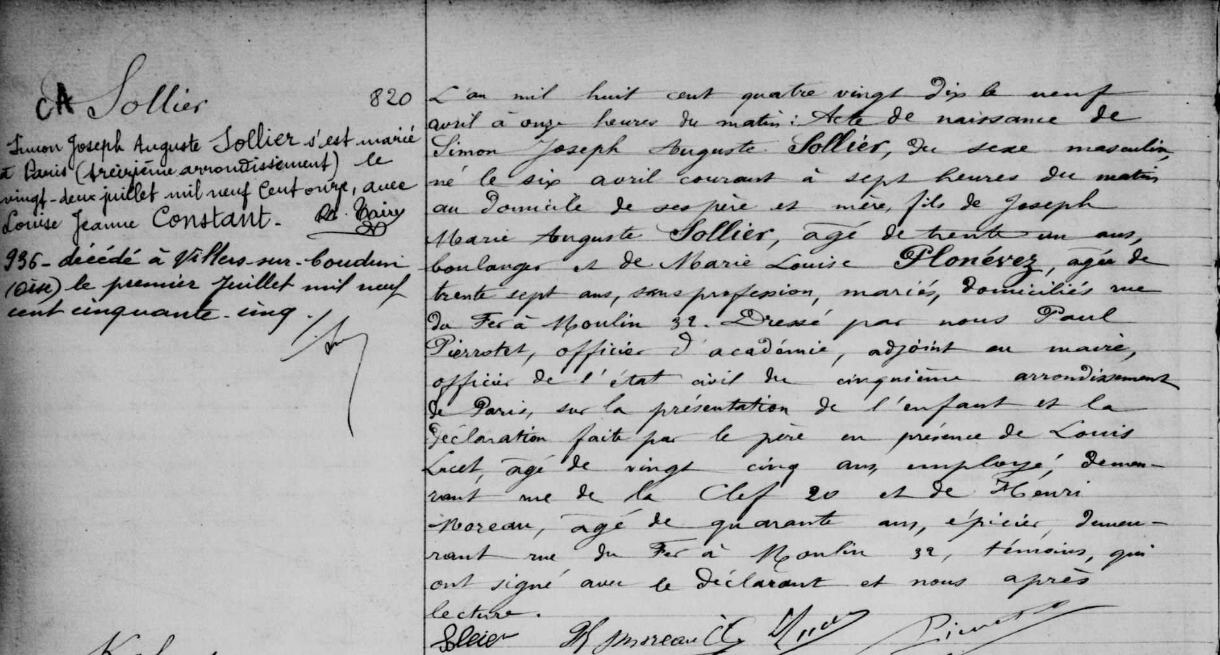 CA Sollier 820
Simon Joseph Auguste Sollier s'est marié
à Paris (treizième arrondissement) le
vingt-deux juillet mil neuf cent onze, avec
Louise Jeanne Constant.-
936 - décédé à Villers-sur-Coudun
(Oise) le premier Juillet mil neuf
cent cinquante-cinq.
L'an mil huit cent quatre vingt dix le neuf
avril à onze heures du matin: Acte de naissance de
Simon Joseph Auguste Sollier, du sexe masculin,
né le six avril courant à sept heures du matin
au domicile de ses père et mère, fils de Joseph
Marie Auguste Sollier, âgé de trente un ans,
boulanger et de Marie Louise Plonévez, agée de
trente sept ans, sans profession, mariés, domiciliés rue
du Fer à Moulin 32. Dressé par nous Paul
Pierrotet, officier d'académie, adjoint au maire,
officier de l'état civil du cinquième arrondissement
de Paris, sur la présentation de l'enfant et la
déclaration faite par le père en présence de Louis
Lucet, âgé de vingt cinq ans, employé, demeu-
rant rue de la Clef 20 et de Henri
Moreau, âgé de quarante ans, épicier, demeu-
rant rue du Fer à Moulin 32, témoins, qui
ont signé avec le déclarant et nous après
lecture.
Moreau